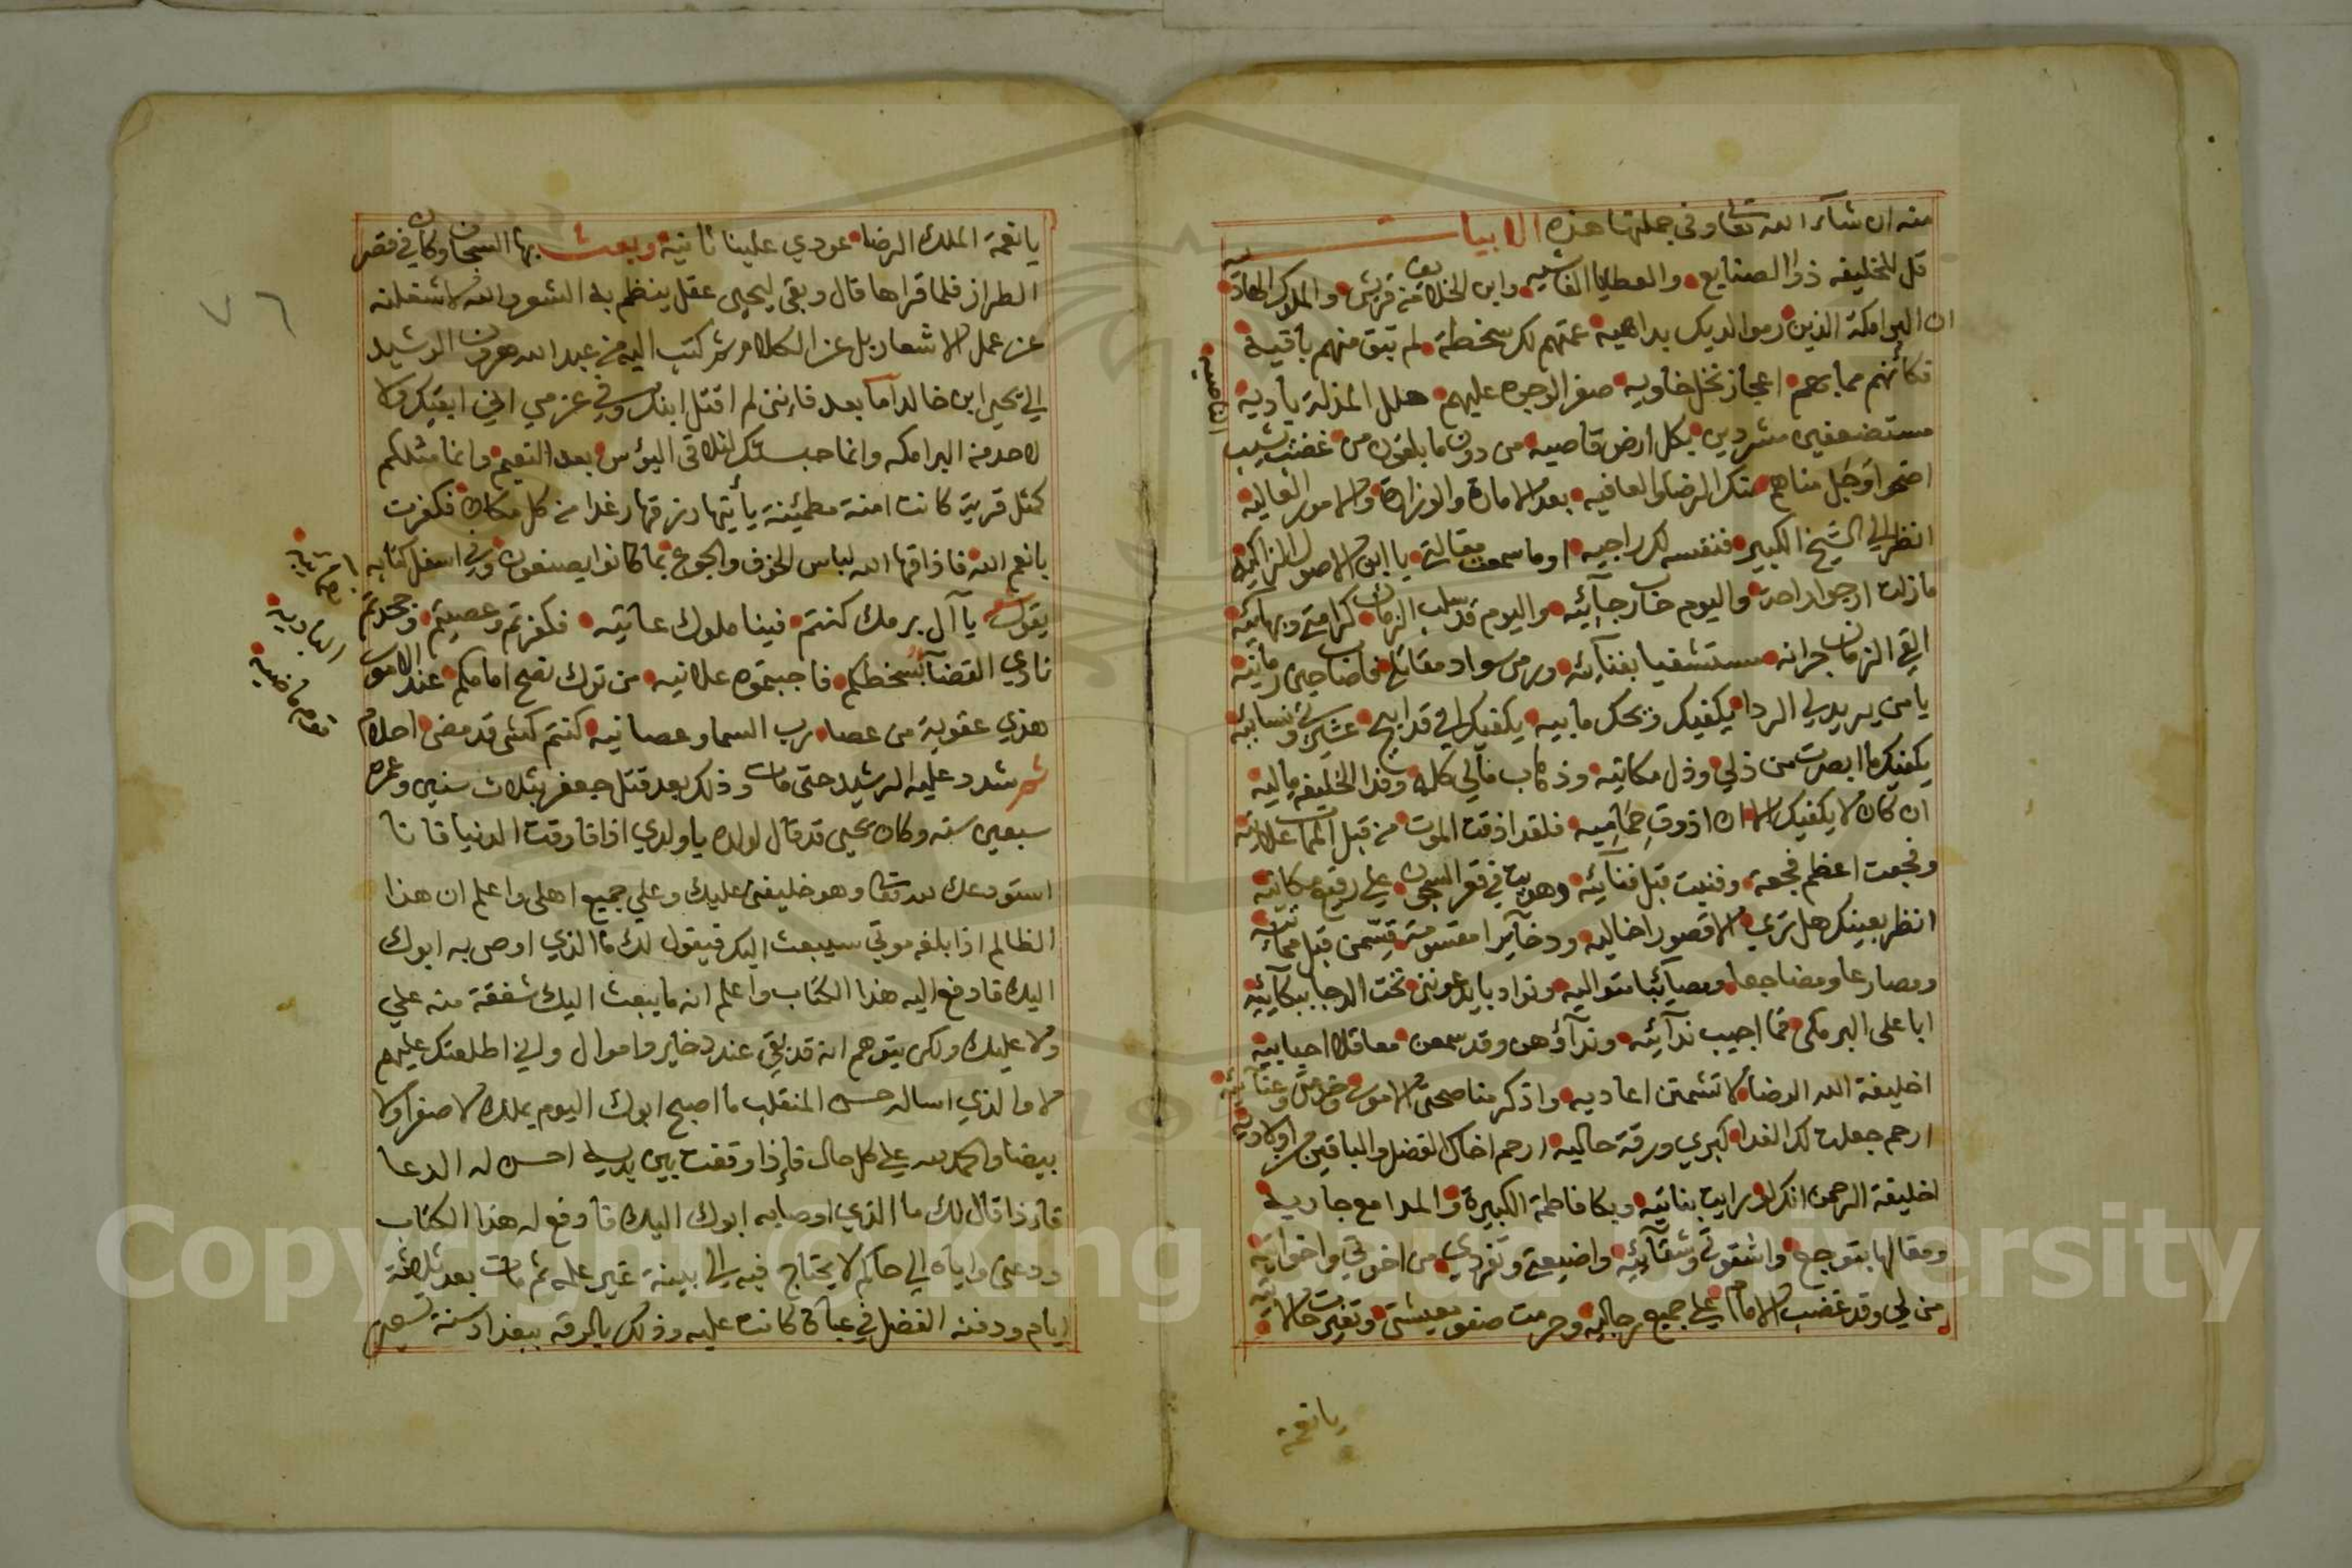 منه ان شآء الله تعالى وفي جملتها هذه الابيات
قل للخليفه ذوا الصنايع والعطايا الفاشيه وابن الخلايف من قريش والملوك الهاديه
ان البرامكة الذين رموا لديك بداهيه عمتهم لك سخطة لم تبق منهم باقية
فكأنهم مما بهم اعجاز نخل خاويه صفر الوجوه عليهم حلل المذلة باديه
مستضعفين مشردين بكل ارض قاصيه من دون ما يلقون من غضب يشيب الناصيه
اضحوا وجل مناهم منك الرضا والعافيه بعد الامارة والوزارة والامور العاليه
انظر الي الشيخ الكبير فنفسه لك راجيه او ما سمعت مقالتي يا ابن الاصول الزاكيه
ما زلت ارجوا راحة واليوم خاب رجآئيه واليوم قد سلب الزمان كرامتي وبهآئيه
القي الزمان جرانه مستشفيا بفنآئيه ورمي سواد مقاتلي فاصاب حين رمانيه
يا من يريد لي الردا يكفيك ويحك ما بيه يكفيك اني قد ابيح عشيرتي ونسآئيه
يكفيك ما ابصرت من ذلي وذل مكانيه وذهاب مالي كله وفدا الخليفه ماليه
ان كان لا يكفيك الا ان اذوق حماميه فلقد اذقت الموت من قبل الممات علانيه
وفجعت اعظم فجعة وفنيت قبل فنآئيه وهويت في قعر السجون علي رفيع مكانيه
انظر بعينك هل تري الا قصورا خاليه وذخآيرا مقسومة قسمن قبل مماتيه
ومصارعا ومضاجعا ومصآئبا متواليه ونوادبا يدعونني تحت الدجا ببكآئيه
ابا على البرمكي فما اجيب ندآئيه وندآؤهن وقد سمعن مقلقلا احبابيه
اخليفة الله الرضا لا تشمتن اعاديه واذكر مناصحتى الامور وخدمتي وعنآئيه
ارحم جعلت لك الفدا كبري ورقة حاليه ارحم اخاك الفضل والباقين من اولاديه
اخليفة الرحمن انك لو رايت بناتيه وبكا فاطمة الكبيرة والمدامع جاريه
ومقالها بتوجع واشقوتي وشقآئيه واضيعتي وتفردي من اخوتي واخواتيه
من لي وقد غضب الامام علي جميع رجاليه وحرمت صفو معيشتي وتغيرت حالاتيه
يا نعمة
٧٦
يا نعمة الملك الرضا عودي علينا ثانية وبعث بها السجان وكان في قصر
الطراز فلما قراها قال وبقى ليحيى عقل ينظم به الشعر والله لاشغلنه
عن عمل الاشعار بل عن الكلام ثم كتب اليه من عبد الله هرون الرشيد
الي يحيى ابن خالد اما بعد فاني لم اقتل ابنك وفي عزمي اني ابقيك ولا
لاحد من البرامكه وانما حبستك لتلاقى البؤس بعد النعيم وانما مثلكم
كمثل قرية كانت امنة مطمئنة يأتيها رزقها رغدا من كل مكان فكفرت
بانعم الله فاذاقها الله لباس الخوف والجوع بما كانوا يصنعون وفي اسفل كتابه
يقول يا آل برمك كنتم فينا ملوك عاتيه فكفرتم وعصيتم وجحدتم
نادي القضآ بسخطكم فاجبتموه علانيه من ترك نصح امامكم عند الامور الباديه
هذي عقوبة من عصا رب السما وعصانيه كنتم كشى قد مضى احلام
ثم شدد عليه الرشيد حتى مات وذلك بعد قتل جعفر بثلاث سنين وعمره
سبعين سنه وكان يحيى قد قال لولده يا ولدي اذا فارقت الدنيا فانا
استودعك لله تعالى وهو خليفتي عليك وعلي جميع اهلى واعلم ان هذا
الظالم اذا بلغه موتي سيبعث اليك فيقول لك ما الذي اوصى به ابوك
اليك فادفع اليه هذا الكتاب واعلم انه ما يبعث اليك شفقة منه علي
ولا عليك ولكن يتوهم انه قد بقي عند ذخاير واموال واني اطلعتك عليهم
لا والذي اساله حسن المنقلب ما اصبح ابوك اليوم يملك لا صفرا ولا
بيضا والحمد لله علي كل حال فإذا وقفت بين يديه احسن له الدعا
فاذا قال لك ما الذي اوصا به ابوك اليك فادفع له هذا الكتاب
ودعني واياه الي حاكم لا يحتاج فيه الي بينة غير علمه ثم مات بعد ثلاثة
ايام ودفنه الفضل في عباة كانت عليه وذلك بالرقه ببغداد سنة تسعين
Copyright © King Saud University
1957